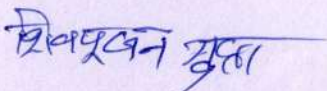 शिवपूजन शुक्ला